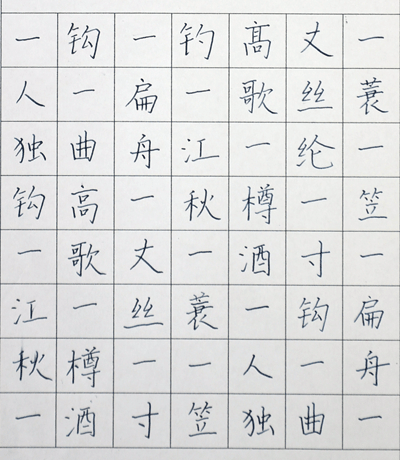 一蓑一笠一扁舟一
丈丝纶一寸钩一曲
髙歌一樽酒一人独
钓一江秋一蓑一笠
一扁舟一丈丝一寸
钩一曲高歌一樽酒
一人独钩一江秋一